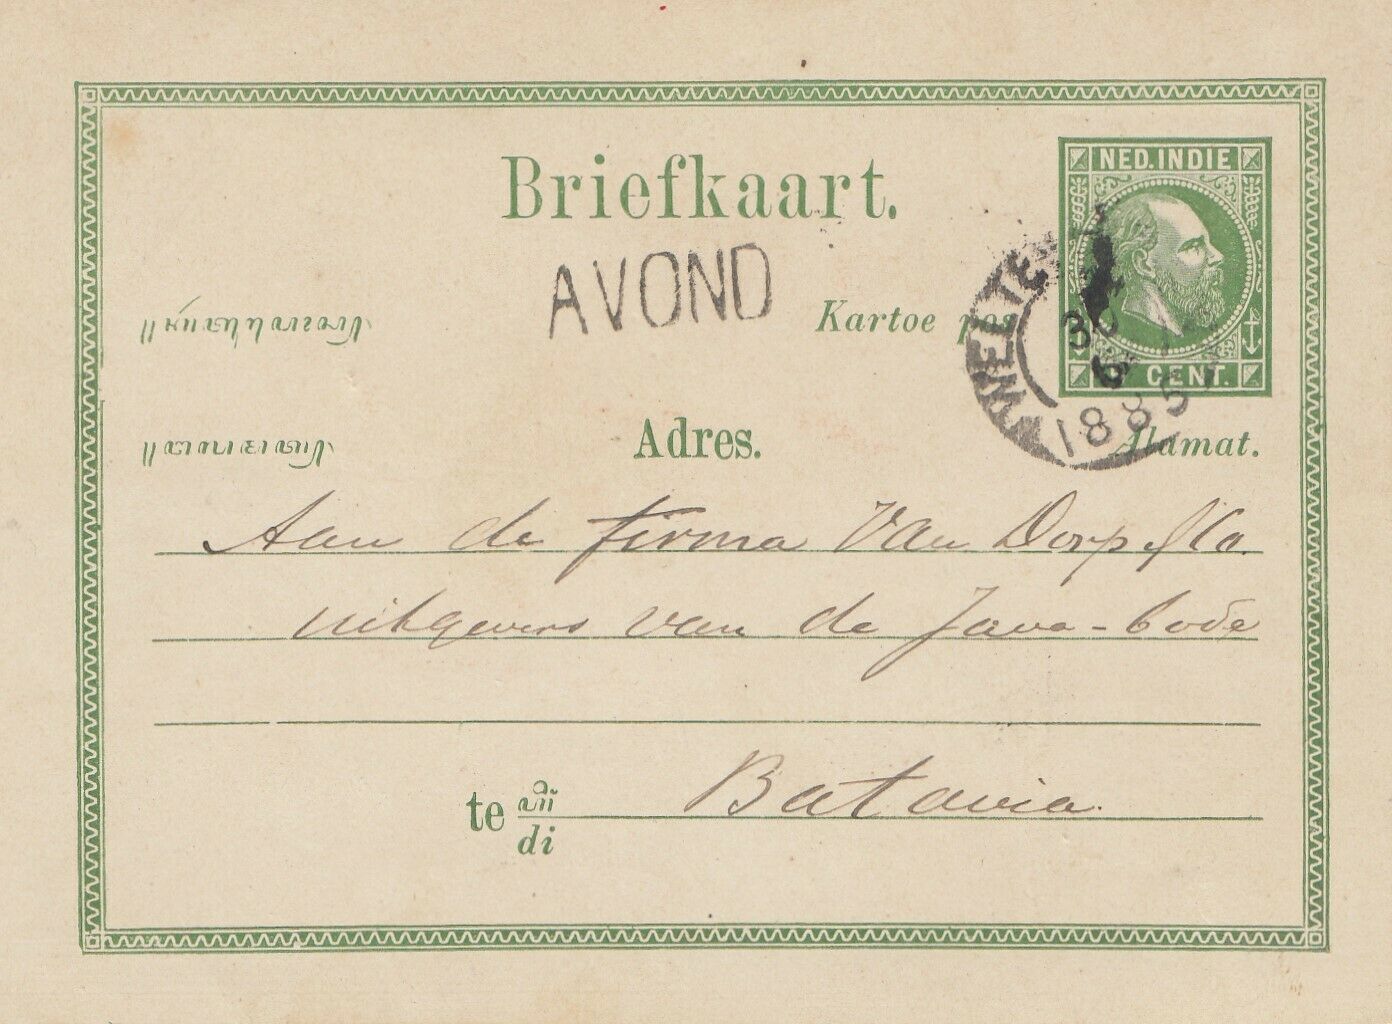 Briefkaart.
NED. INDIE
AVOND
Kartoe pos
CENT.
WELTE
30
6
1885
Adres.
Alamat.
Aan de firma Van Dorp & Co.
uitgevers van de Java-bode
te
di
Batavia.